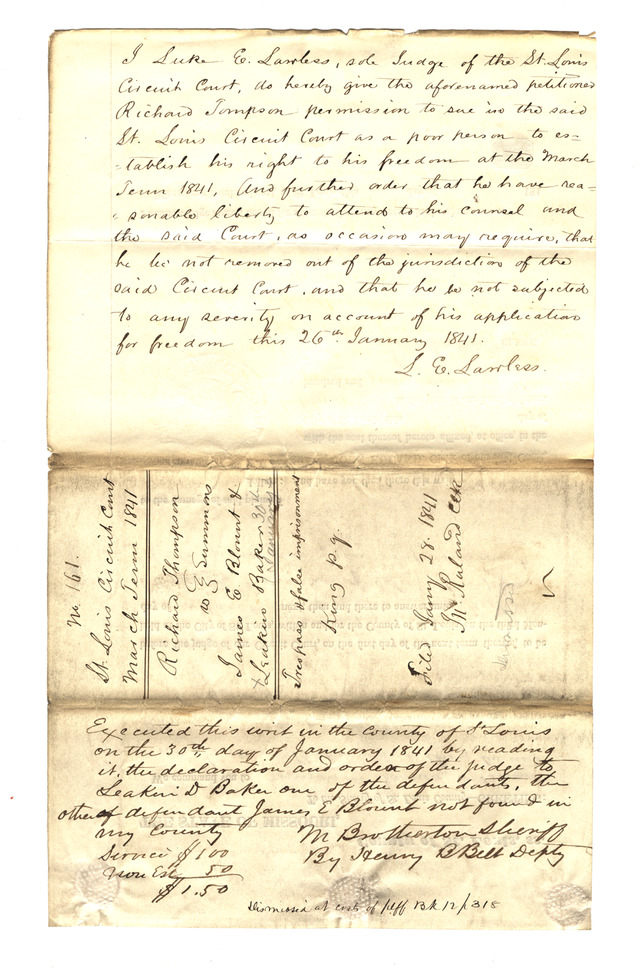 I Luke E. Lawless, sole Judge of the St. Louis
Circuit Court, do hereby give the aforenamed petitioner
Richard Tompson permission to sue in the said
St. Louis Circuit Court as a poor person to es-
-tablish his right to his freedom at the March
Term 1841, And further order that he have rea-
-sonable liberty to attend to his counsel and
the said Court, as occasion may require, that
he be not removed out of the jurisdiction of the
said Circuit Court, and that he be not subjected
to any severity on account of his application
for freedom this 26th January 1841.
L. E. Lawless.
No. 161.
St. Louis Circuit Court
March Term 1841
Richard Thompson
vs } Summons
James E Blount &
Leakin Baker 30th January
Trespass & false imprisonment
King p.q.
Filed Jany 28. 1841
Jn Ruland Clk
Executed this writ in the County of St Louis
on the 30th day of January 1841 by reading
it, the declaration and order of the judge to
Leakin D Baker one of the defendants, the
other defendant James E Blount not found in
my County
M Brotherton Sheriff
Service $1.00
By Henry B Belt Depty
Non Est 50
$1.50
Dismissed at costs of plff Bk 12 p 318